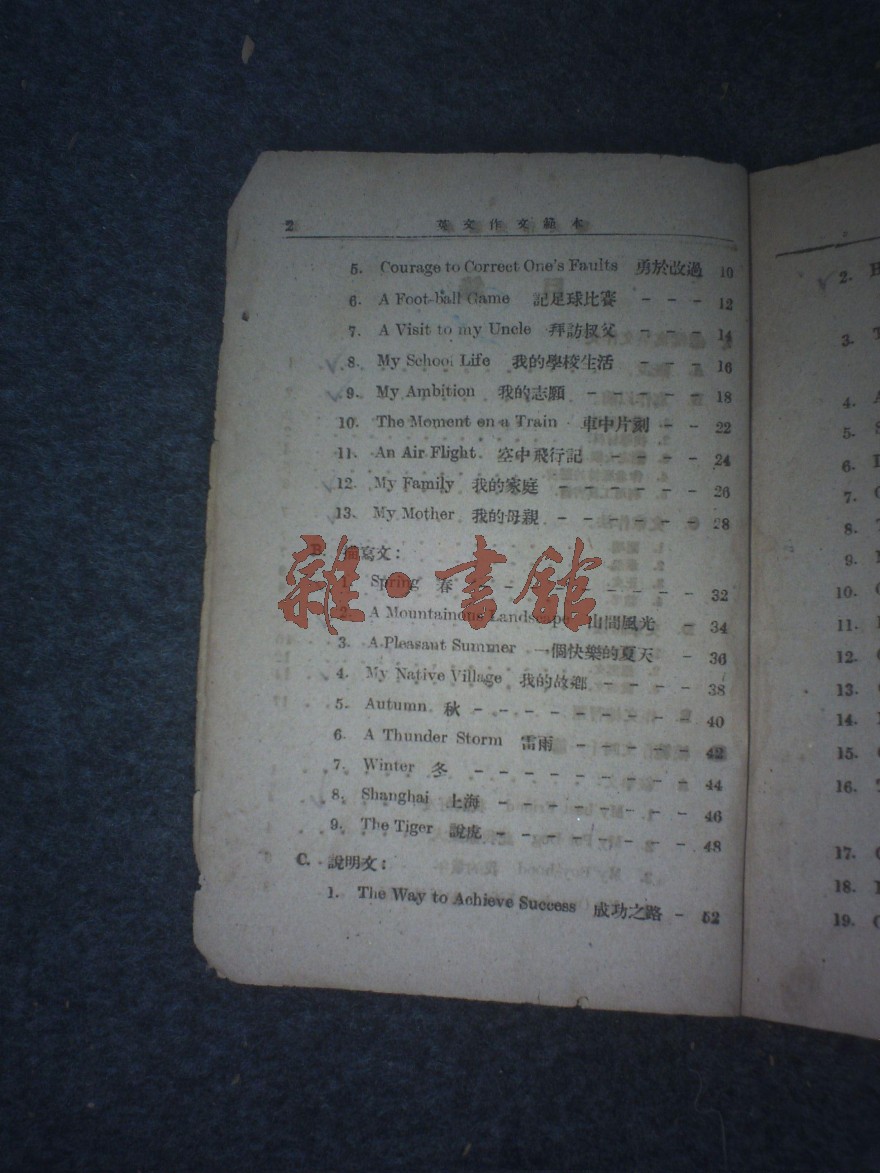 2 英文作文範本
5. Courage to Correct One's Faults 勇於改過 10
6. A Foot-ball Game 記足球比賽 - - - 12
7. A Visit to my Uncle 拜訪叔父 - - - - 14
8. My School Life 我的學校生活 - - - 16
9. My Ambition 我的志願 - - - - - - 18
10. The Moment on a Train 車中片刻 - - 22
11. An Air Flight 空中飛行記 - - - - - 24
12. My Family 我的家庭 - - - - - - - 26
13. My Mother 我的母親 - - - - - - - 28
B. 描寫文:
1. Spring 春 - - - - - - - - - - 32
2. A Mountainous Landscape 山間風光 - 34
3. A Pleasant Summer 一個快樂的夏天 - 36
4. My Native Village 我的故鄉 - - - - - 38
5. Autumn 秋 - - - - - - - - - 40
6. A Thunder Storm 雷雨 - - - - - - 42
7. Winter 冬 - - - - - - - - - - 44
8. Shanghai 上海 - - - - - - - - 46
9. The Tiger 說虎 - - - - - - - - 48
C. 說明文:
1. The Way to Achieve Success 成功之路 - 52
雜·書館
2.
3.
4.
5.
6.
7.
8.
9.
10.
11.
12.
13.
14.
15.
16.
17.
18.
19.